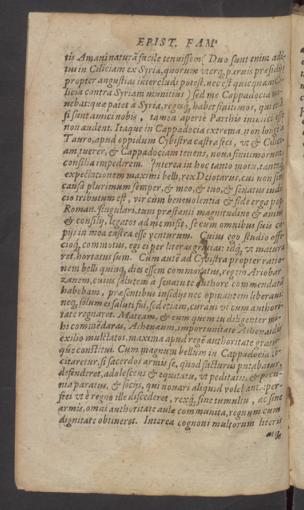 EPIST. FAM.
tis Amani naturâ facile tenuissem. Duo sunt enim adi-
tus in Ciliciam ex Syria, quorum uterq; paruis præsidijs
propter angustias intercludi potest. nec est quicquam Ci-
licia contra Syriam munitius; sed me Cappadocia mo-
uebat: quæ patet à Syria, regesq; habet finitimos, qui etiã
si sunt amici nobis, tamen aperte Parthis inimici esse
non audent. Itaque in Cappadocia extrema non longe à
Tauro, apud oppidum Cybistra castra feci, ut & Cilici-
am tuerer, & Cappadociam tenens, noua finitimorum
consilia impedirem. Interea in hoc tanto motu, tantaq;
expectatione maximi belli, rex Deiotarus, cui non sine
causa plurimum semper, & meo, & tuo, & senatus iudi-
cio tributum est, uir cùm beneuolentia & fide erga pop.
Roman. singulari, tum præstanti magnitudine & animi
& consilij, legatos ad me misit, se cum omnibus suis co-
pijs in mea castra esse uenturum. Cuius ego studio offi-
cioq; commotus, egi ei per literas gratias: idq; ut matura
ret, hortatus sum. Cum autẽ ad Cybistra propter ratio-
nem belli quinq; dies essem commoratus, regem Ariobar
zanem, cuius salutem à senatu te authore commendatã
habebam, præsentibus insidijs nec opinantem liberaui:
neq; solùm ei saluti fui, sed etiam, curaui ut cum authori-
tate regnaret. Metram, & eum quem tu diligenter mi-
hi commẽdaras, Athenæum, importunitate Athenaidis
exilio multatos, maxima apud regẽ authoritate gratia-
q́ue constitui. Cum magnum bellum in Cappadocia con-
citaretur, si sacerdos armis se, quod facturus putabatur,
defenderet, adolescens & equitatu, ut peditatu & pecu-
nia paratus, & socijs, qui nouari aliquid uolebant: per-
feci ut è regno ille discederet, rexq; sine tumultu, ac sine
armis, omni authoritate aulæ communita, regnum cum
dignitate obtineret. Interea cognoui multorum literis